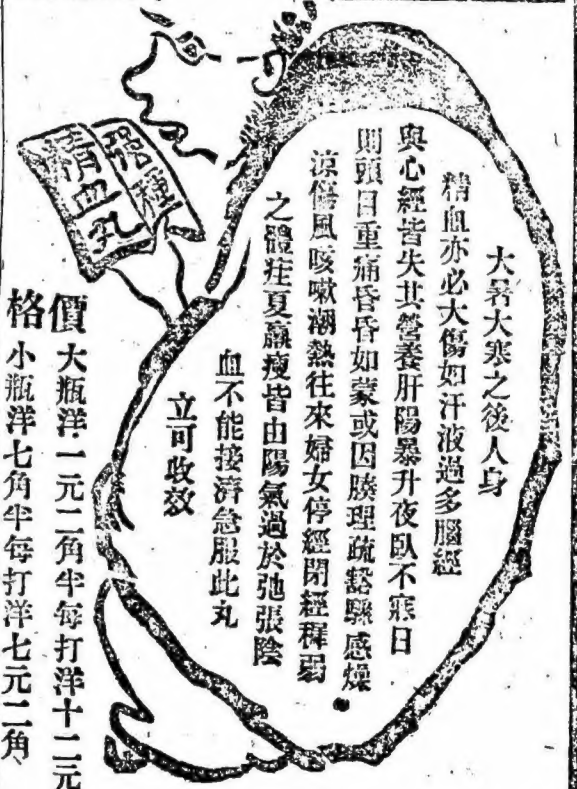 大暑大寒之後人身
精血亦必大傷如汗液過多腦經
與心經皆失其營養肝陽暴升夜臥不寐日
則頭目重痛昏昏如蒙或因腠理疏豁驟感燥
涼傷風咳嗽潮熱往來婦女停經閉經穉弱
之體疰夏羸瘦皆由陽氣過於弛張陰
血不能接濟急服此丸
立可收效
種
精血
價格
大瓶洋一元二角半每打洋十二元
小瓶洋七角半每打洋七元二角